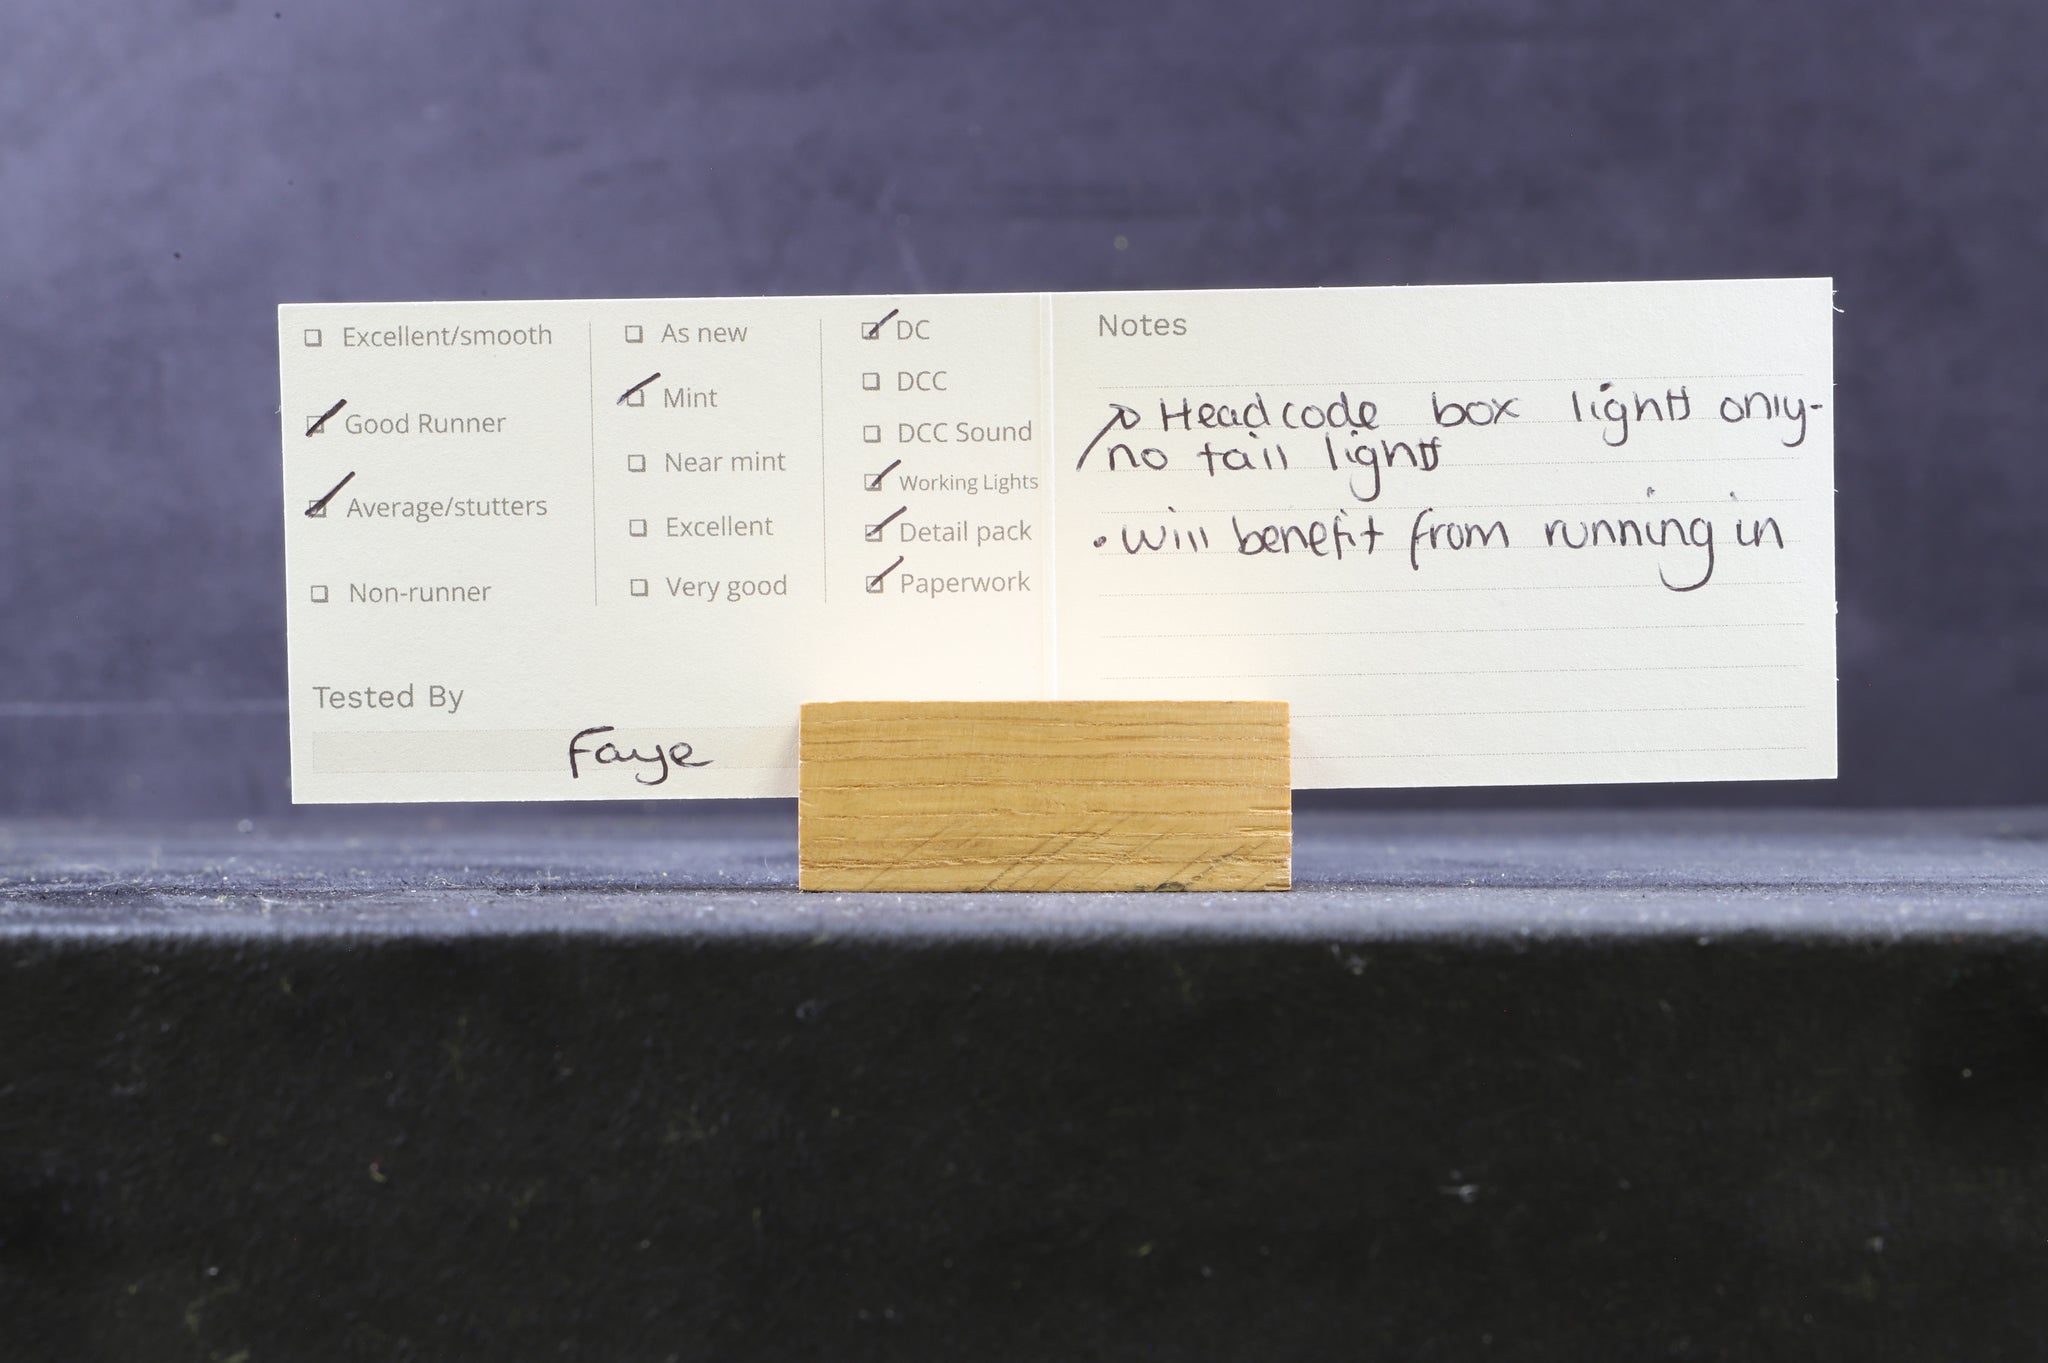 Excellent/smooth
Good Runner
Average/stutters
Non-runner
As new
Mint
Near mint
Excellent
Very good
DC
DCC
DCC Sound
Working Lights
Detail pack
Paperwork
Tested By
Faye
Notes
Headcode box lights only-
no tail lights
• Will benefit from running in